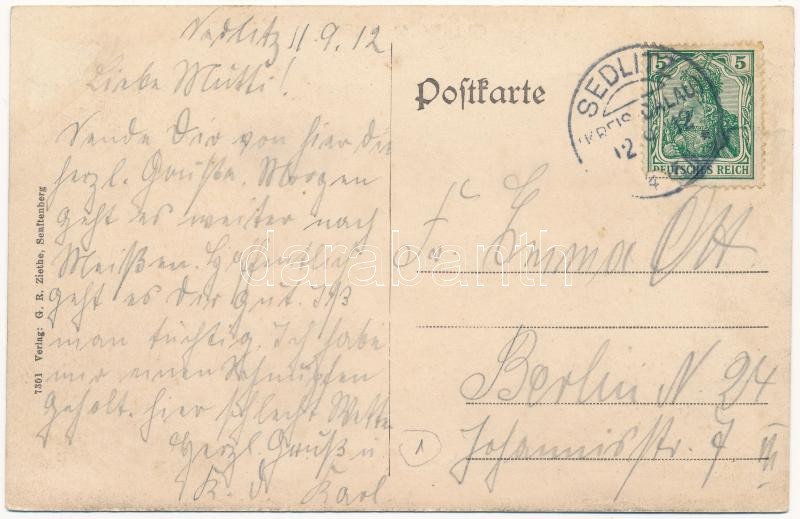 Sedlitz 11.9.12
Liebe Mutti!
Sende Dir von hier die
herzl. Grüße. Morgen
geht es weiter nach
Meißen. Hoffentlich
geht es Dir gut. Iß
man tüchtig. Ich habe
mir einen Schnupfen
geholt. hier schlecht Wette
Herzl. Gruß u
K. d. Karl
7301 Verlag: G. R. Ziethe, Senftenberg
Postkarte
SEDLITZ
(KREIS CALAU)
12 9 12
5 5
DEUTSCHES REICH
Fr Emma Ott
Berlin N. 24
Johannisstr. 7 III
1
darabanth